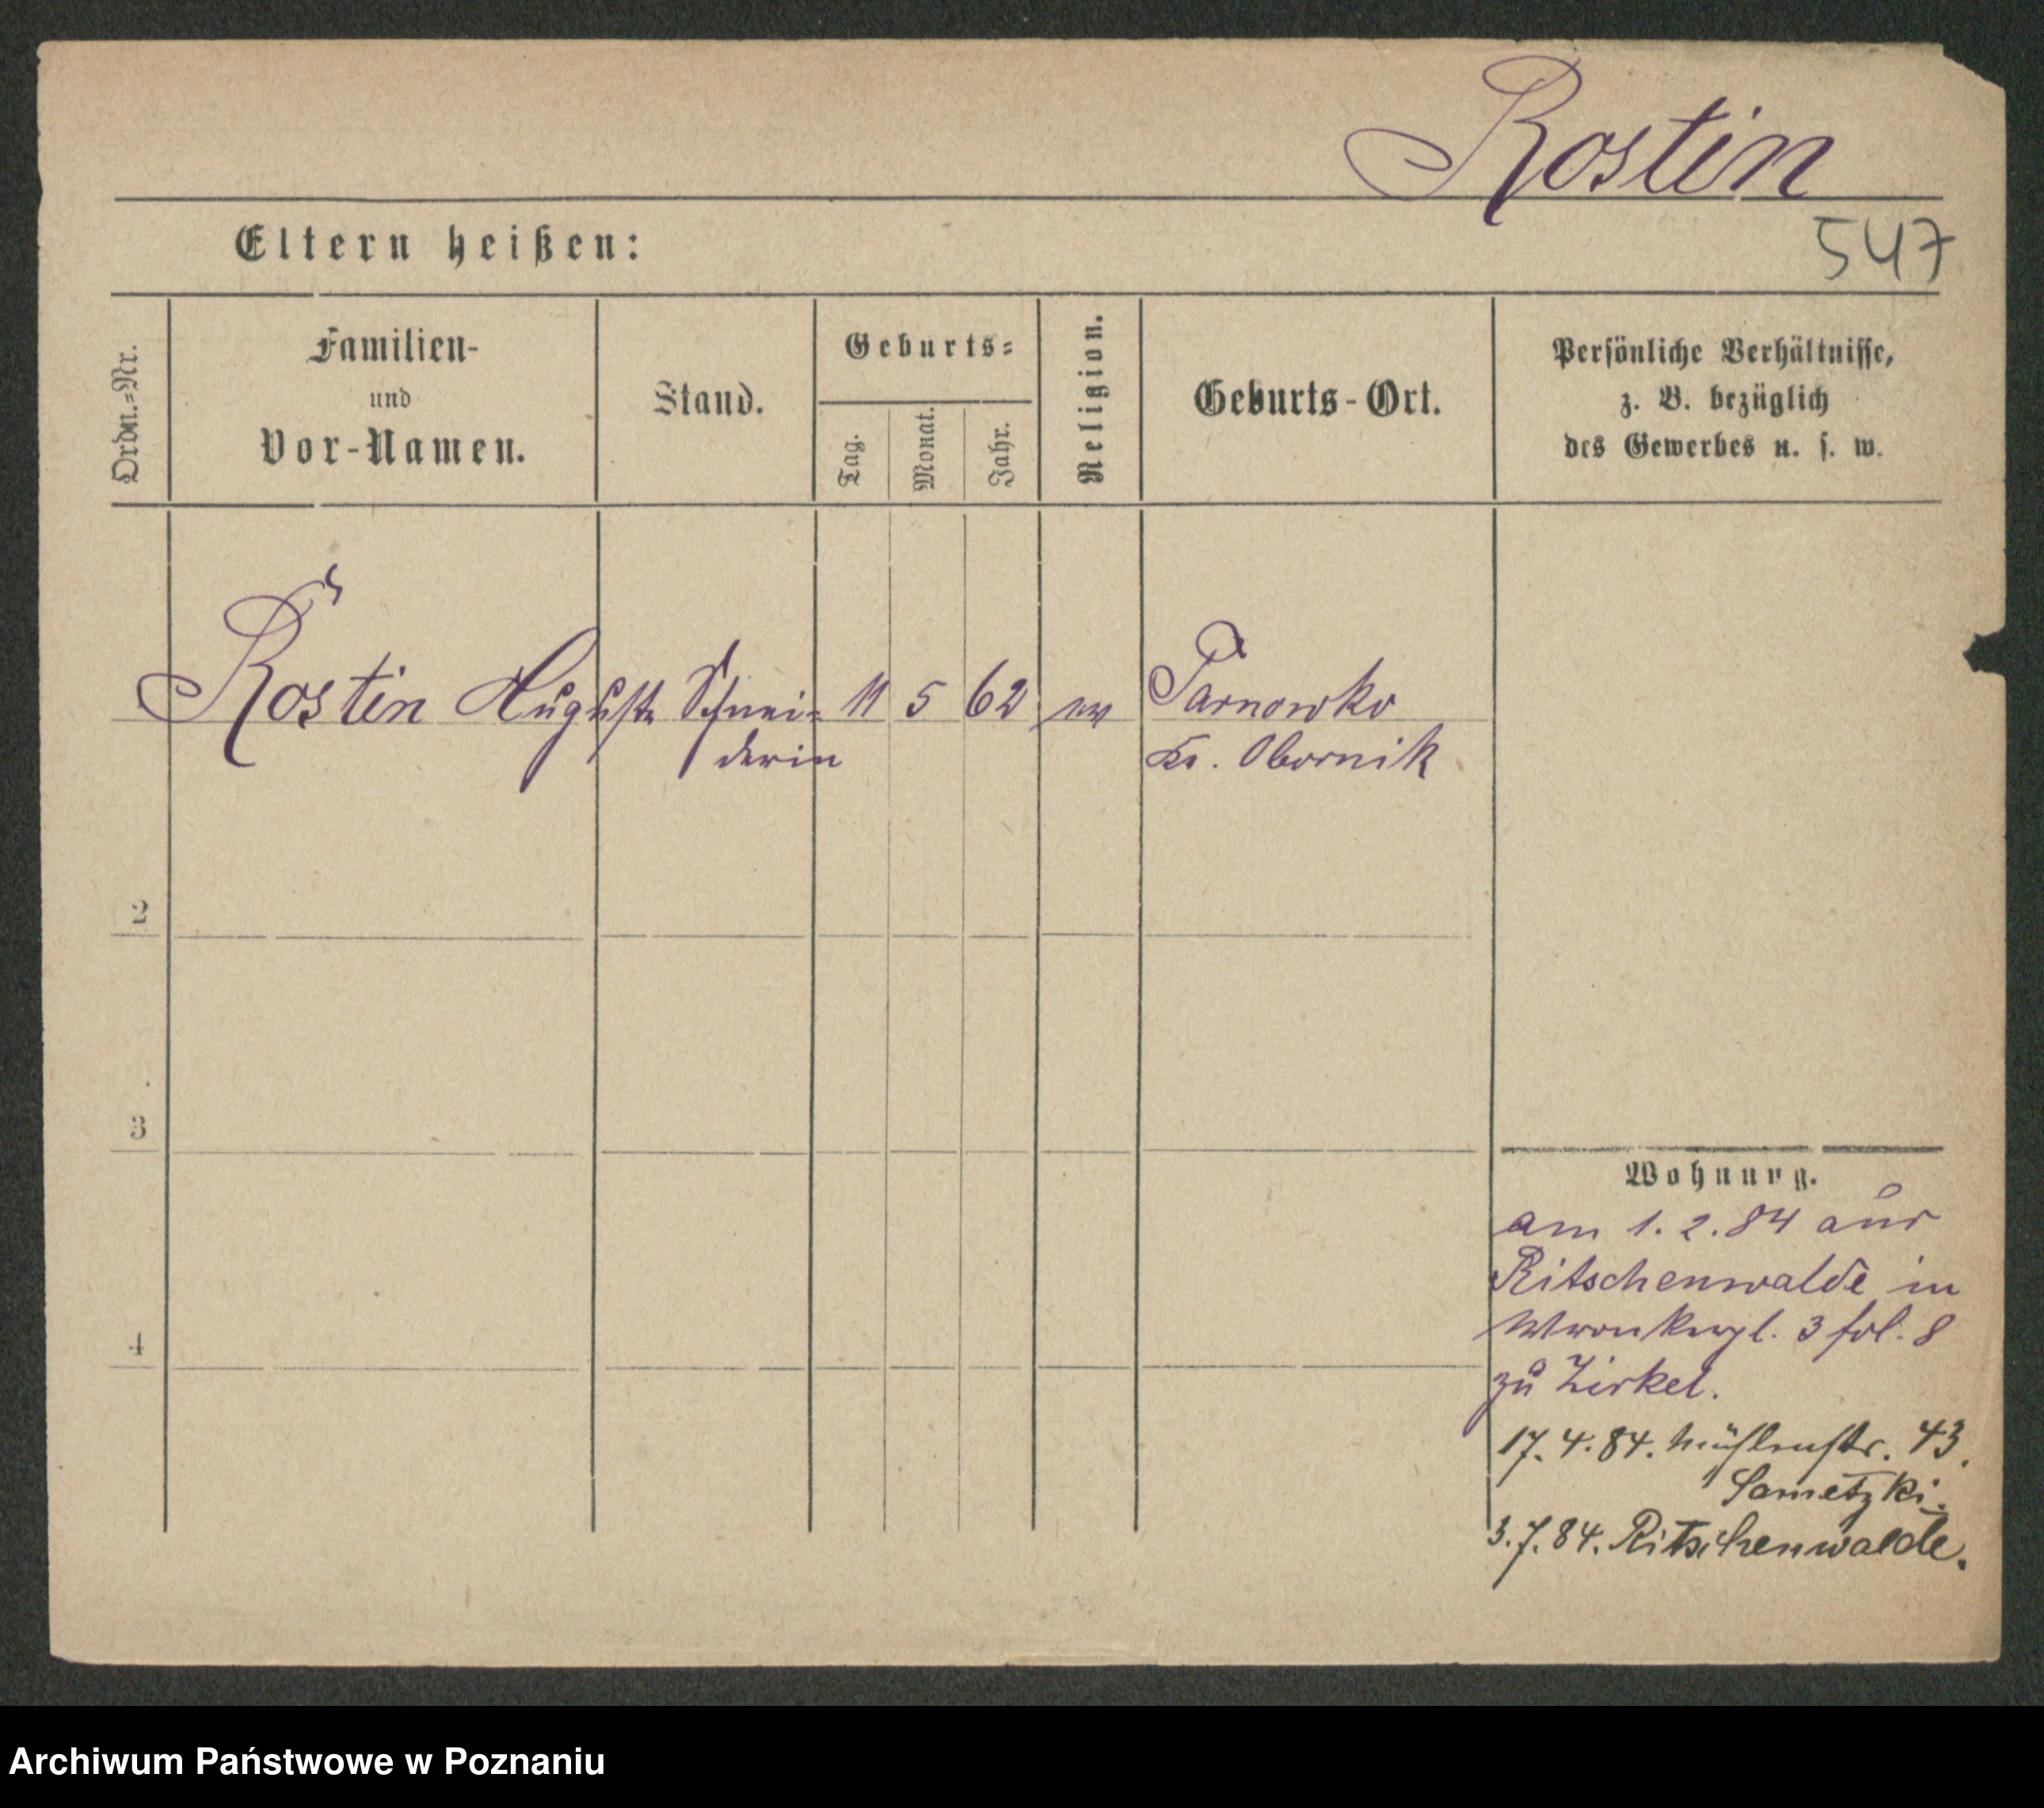 Rostin
Eltern heißen:
547
Ordn.=Nr.
Familien-
und
Vor-Namen.
Stand.
Geburts=
Tag.
Monat.
Jahr.
Religion.
Geburts-Ort.
Persönliche Verhältnisse,
z. B. bezüglich
des Gewerbes u. s. w.
Rostin Auguste Schnei= 11 5 62 ev Tarnowko
derin Kr. Obornik
2
3
4
Wohnung.
am 1. 2. 84 aus
Ritschenwalde in
Wronkerpl. 3 fol. 8
zu Zirkel.
17. 4. 84. Mühlenstr. 43.
Sametzki.
3. 7. 84. Ritschenwalde.
Archiwum Państwowe w Poznaniu